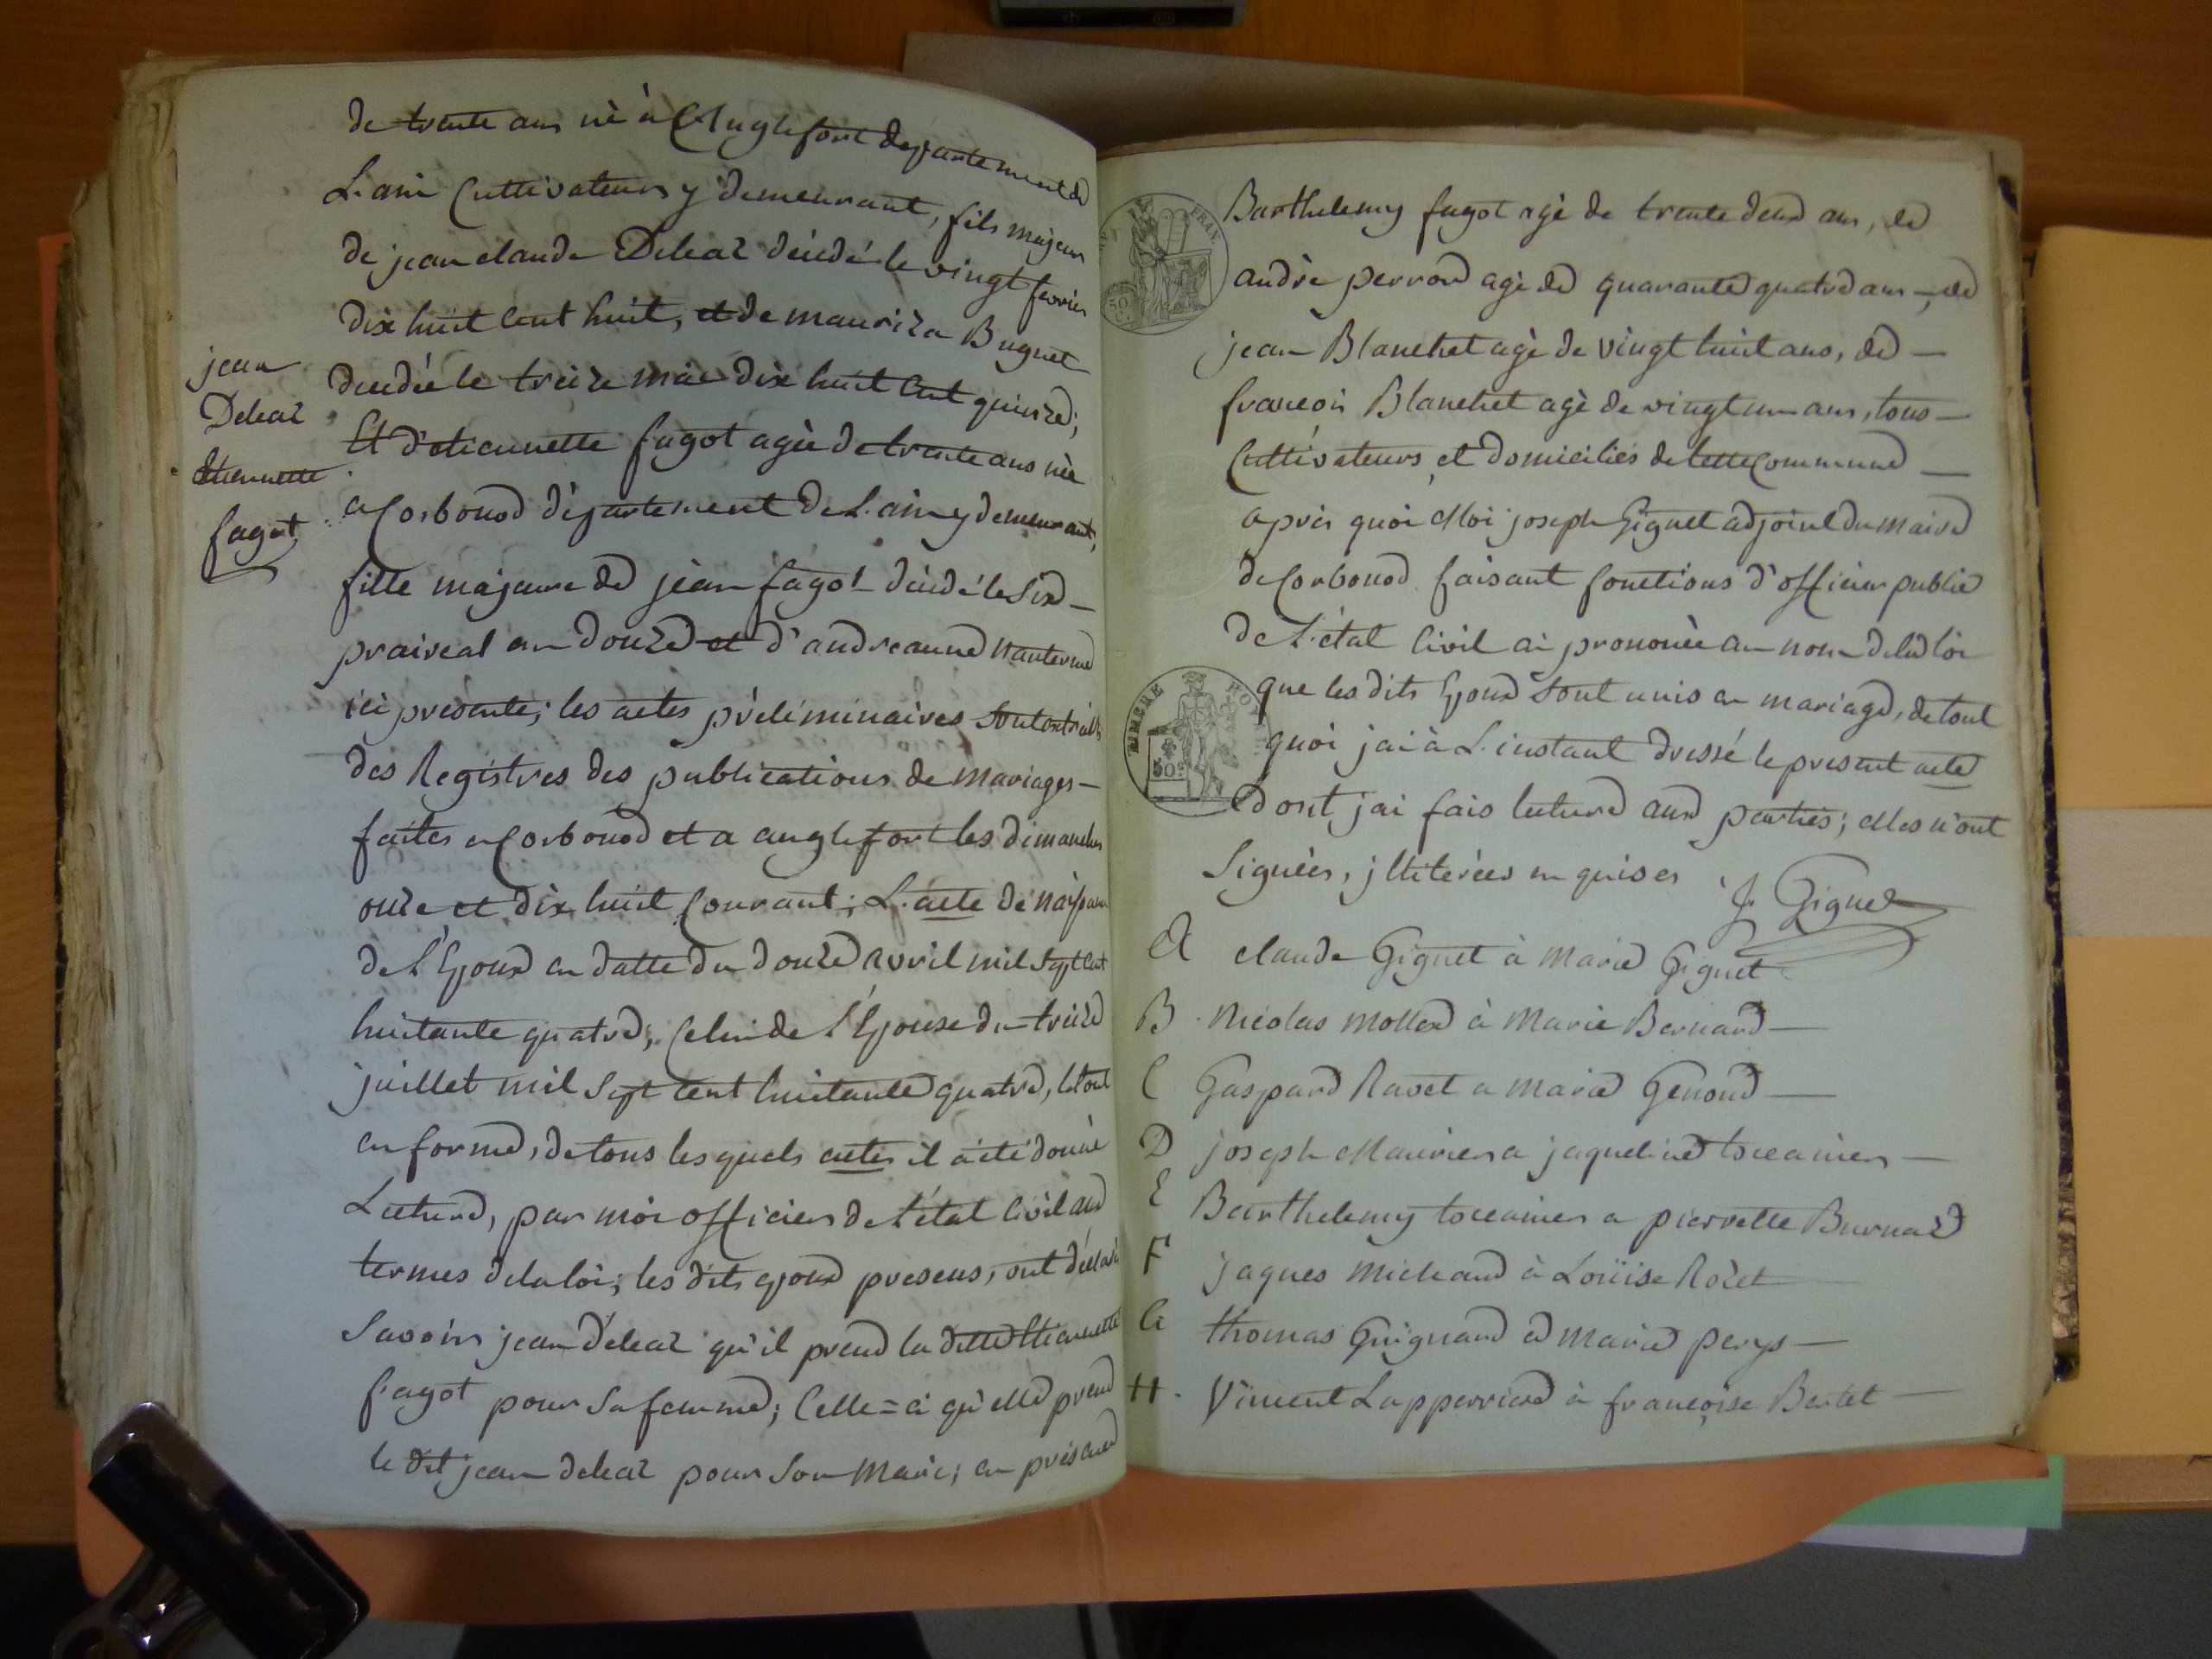 de trente ans nè à Anglefort departement de
L'ain Cultivateurs y demeurant, fils majeur
de jean claude Deleaz décédé le vingt fevrier
dix huit cent huit, et de mauriza Buguet
decedée le treize mai dix huit cent quinze;
Et d'etiennette fagot agée de trente ans née
a Corbonod département de L'ain y demeurant,
fille majeure de jean fagot décédé le six
praireal an douze et d'andreanne Nanterme
ici presente; les actes préliminaires sont extraits
des Registres des publications de Mariages
faites a Corbonod et a anglefort les dimanches
onze et dix huit Courant; L'acte de naissance
de l'Epoux en datte du douze avril mil sept cent
huitante quatre; Celui de l'Epouse du treize
juillet mil sept cent huitante quatre, le tout
en forme, de tous les quels actes il a été donné
Lecture, par moi officier de l'état Civil aux
termes de la loi; les dits epoux presens, ont déclaré
Savoir jean deleaz qu'il prend la ditte Etiennette
fagot pour sa femme; Celle=ci qu'elle prend
le dit jean deleaz pour son Mari; en présence
jean
Deleaz
Etiennette
fagot
Barthelemy fagot agé de trente deux ans, de
andré perron agé de quarante quatre ans, de
jean Blanchet agé de vingt huit ans, de
françois Blanchet agé de vingt un ans, tous
Cultivateurs et domiciliés de cette Commune
après quoi Moi joseph Gignet adjoint du Maire
de Corbonod faisant fonctions d'officier public
de L'état Civil ai prononcé au nom de la loi
que les dits Epoux sont unis en mariage, de tout
quoi j'ai à L'instant dressé le present acte
dont j'ai fais lecture aux parties; elles n'ont
Signées, jllitérées en quises J. Gignet
A claude Gignet à Marie Gignet
B Nicolas Mollex à Marie Bernard
C Gaspard Ravet a Marie Genoud
D joseph Mauriera jaqueline tocanier
E Barthelemy tocanier a pierrette Burnaz
F jaques Michaud à Loüise Rozet
G thomas Guignard a Marie perys
H Vincent Lapperriere à françoise Bertet
FRAN
50
TIMBRE ROY
50c